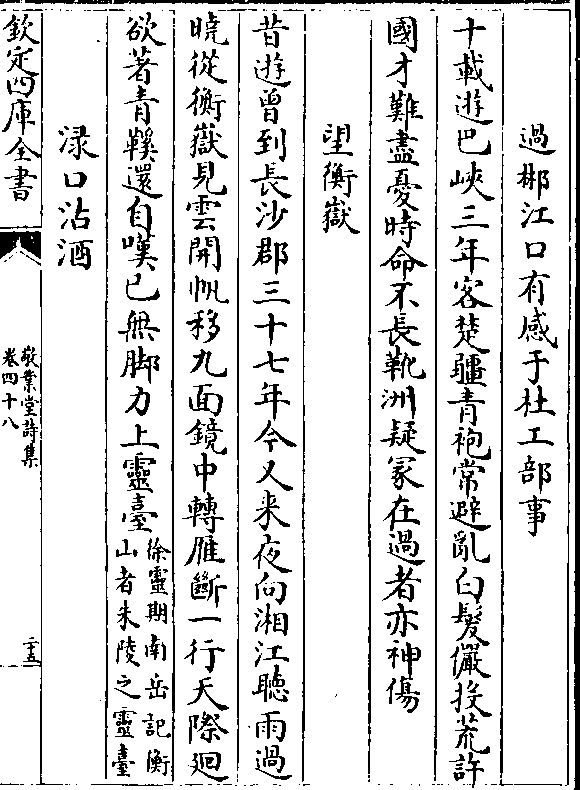 過郴江口有感于杜工部事
十載遊巴峽三年客楚疆青袍常避亂白髮儼投荒許
國才難盡憂時命不長靴洲疑冢在過者亦神傷
望衡嶽
昔遊曾到長沙郡三十七年今又来夜向湘江聽雨過
曉從衡嶽見雲開帆移九面鏡中轉雁斷一行天際迴
欲著青鞵還自嘆已無脚力上靈臺徐靈期南岳記衡
山者朱陵之靈臺
淥口沽酒
欽定四庫全書
敬業堂詩集
卷四十八
二十五